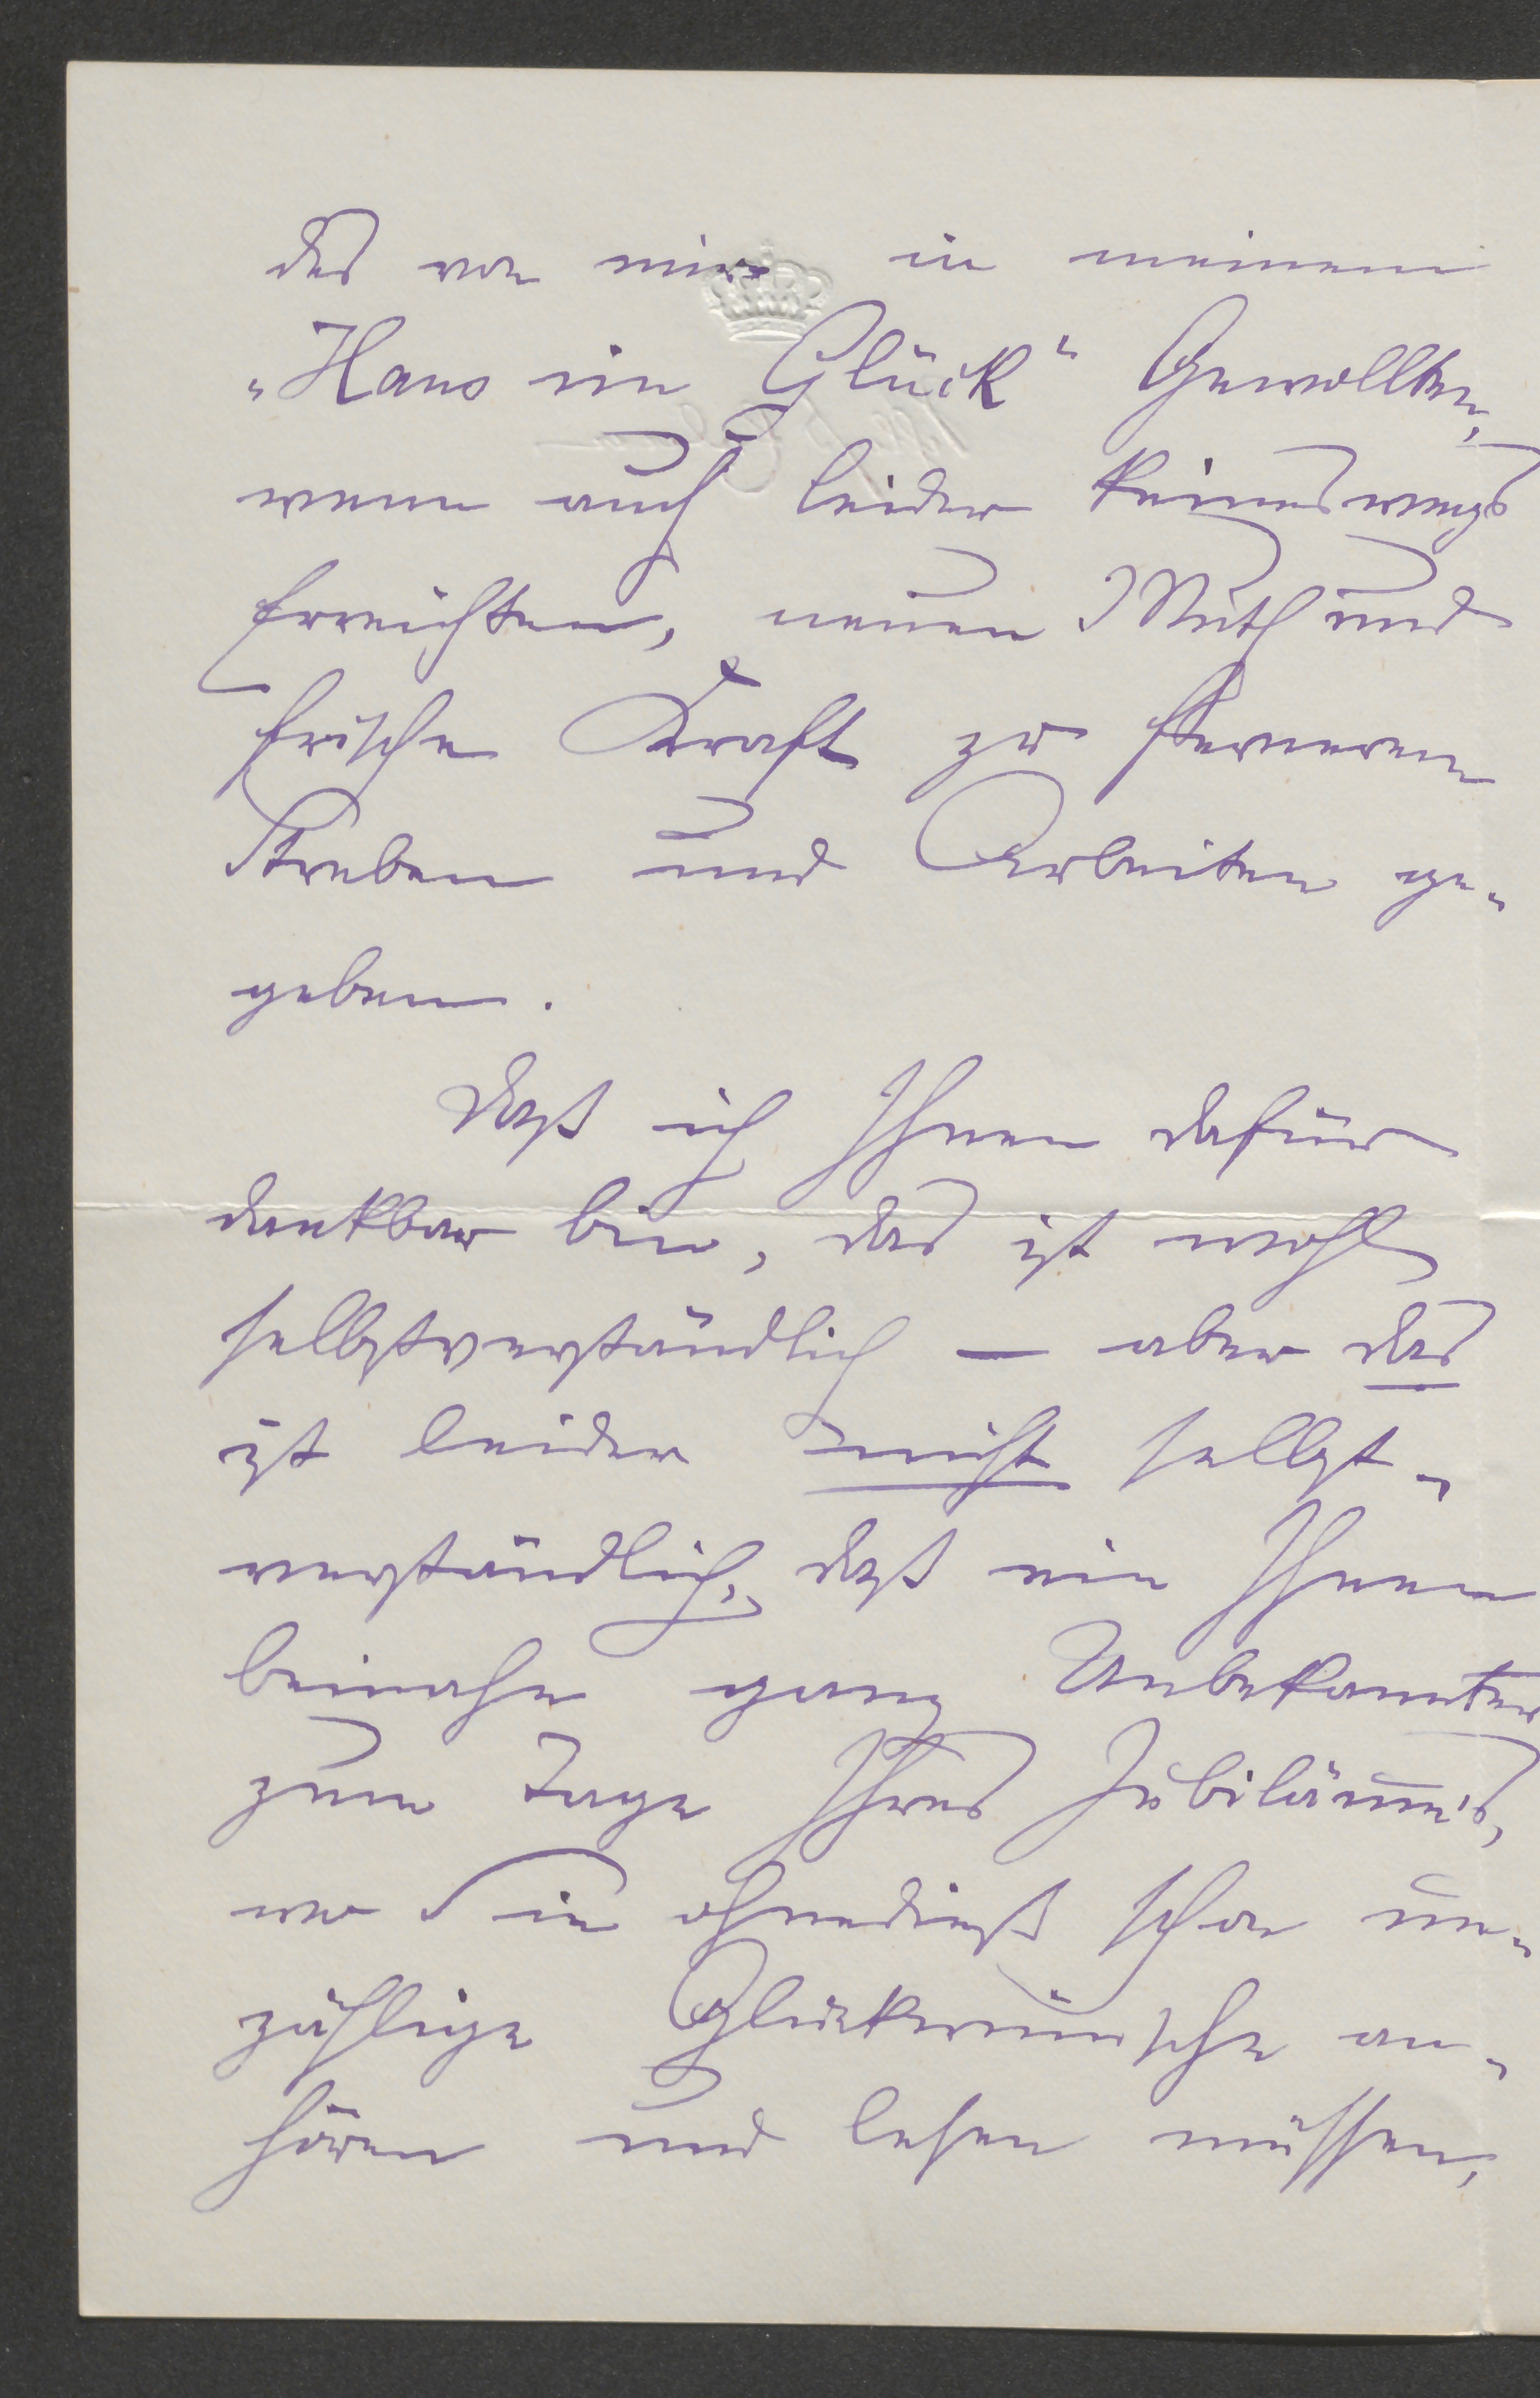 des von mir in meinem
„Hans im Glück“ Gewollten,
wenn auch leider keineswegs
Erreichten, neuen Muth und
frische Kraft zu fernerem
Streben und Arbeiten ge-
geben.
Daß ich Ihnen dafür
dankbar bin, das ist wohl
selbstverständlich — aber das
ist leider nicht selbst-
verständlich, daß ein Ihnen
beinahe ganz Unbekannter
zum Tage Ihres Jubiläum's,
wo Sie ohnedieß schon un-
zählige Glückwünsche an-
hören und lesen müssen,